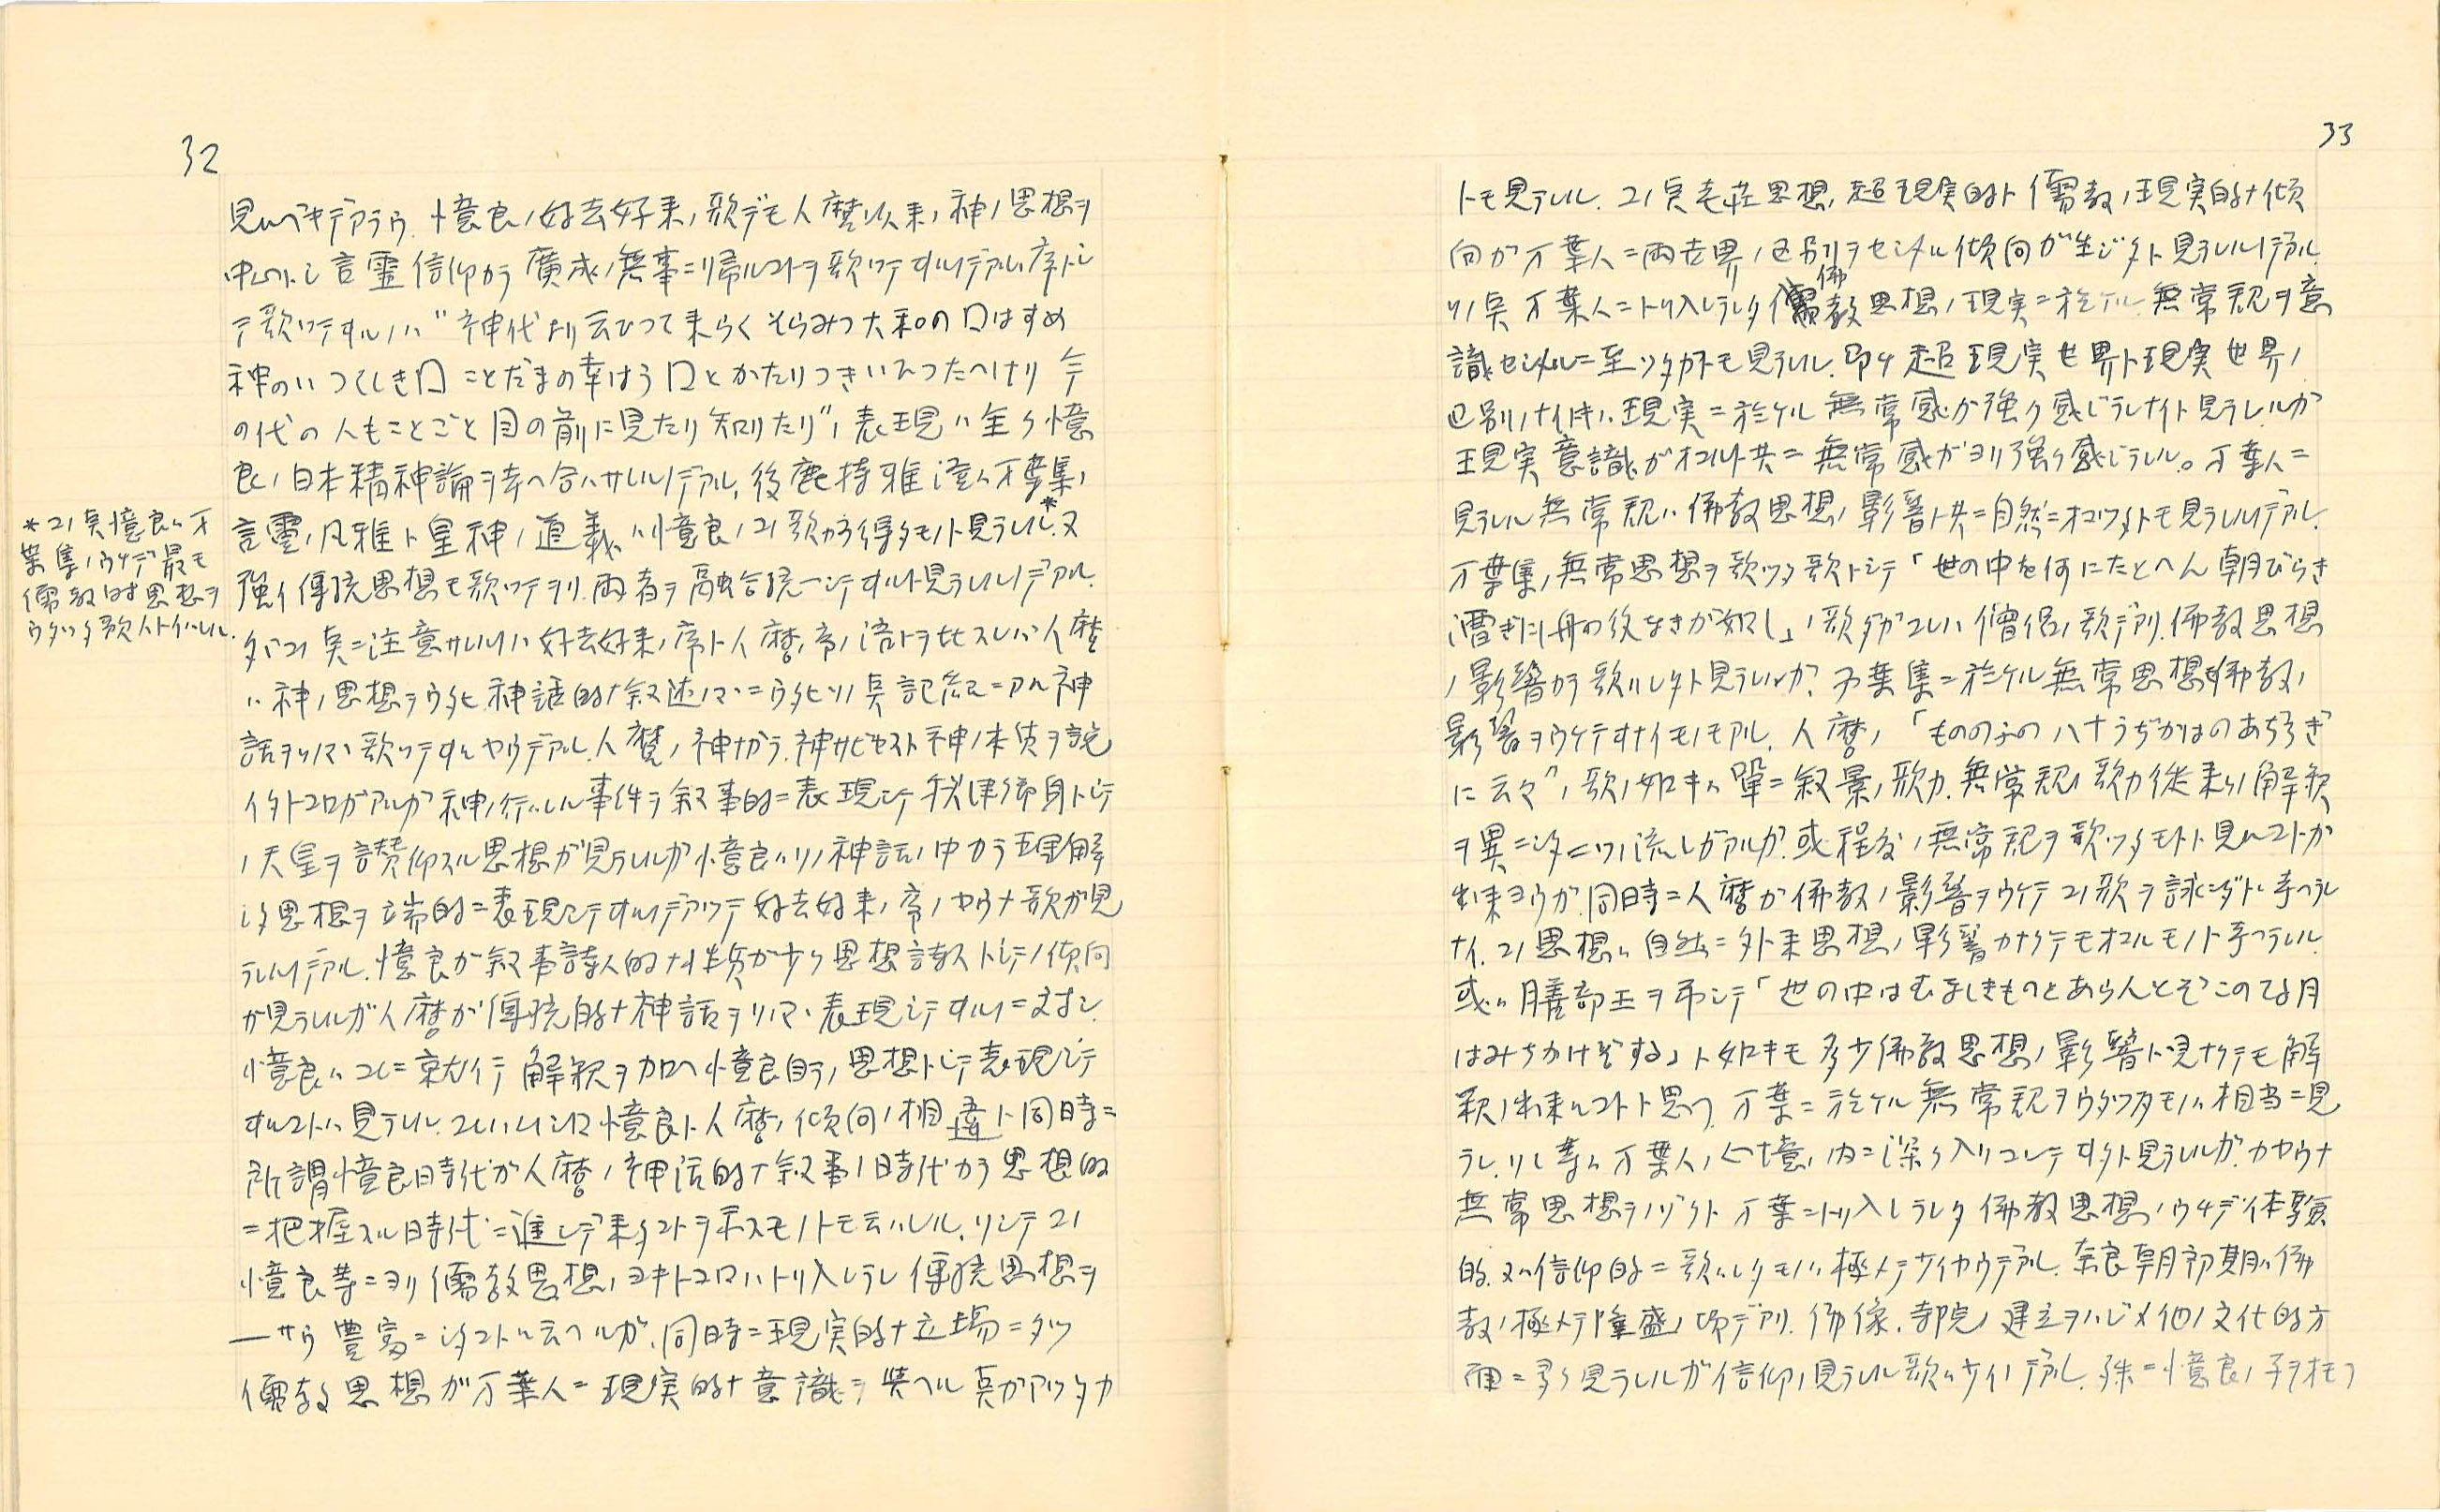 32
見ルベキデアラウ. 憶良ノ好去好来ノ歌デモ人麿以来ノ神ノ思想ヲ
中心トシ言霊信仰カラ廣成ノ無事ニ帰ルコトヲ歌ツテヰルノデアル. 序トシ
テ歌ツテヰルノハ〝神代より云ひつて来らく そらみつ大和の口はすめ
神のいつくしき口 ことだまの幸はう口とかたりつきいひつたへけり 今
の代の人もことごと目の前に見たり知りたり〞ノ表現ハ全ク憶
良ノ日本精神論ヲ考ヘ合ハサレルノデアル. 後鹿持雅澄ハ万葉集ノ
言霊ノ風雅ト皇神ノ道義ハ憶良ノコノ歌カラ得タモノト見ラレル.* 又
強イ傳統思想モ歌ツテヲリ. 両者ヲ融合統一シテヰルト見ラレルノデアル.
タヾコノ点ニ注意サレルハ好去好来ノ序ト人麿ノ序ノ語トヲ比スレバ人麿
ハ神ノ思想ヲウタヒ 神話的ナ叙述ノマヽニウタヒソノ点記紀ニアル神
話ヲソノマヽ歌ツテヰルヤウデアル. 人麿ノ神ナガラ. 神サビセスト神ノ本質ヲ説
イタトコロガアルガ神ノ行ハレル事件ヲ叙事的ニ表現シテ秋津嶋身トシテ
ノ天皇ヲ讃仰スル思想が見ラレルガ憶良ハソノ神話ノ中カラ理解
シタ思想ヲ端的ニ表現シテヰルノデアツテ好去好来ノ序ノヤウナ歌が見
ラレルノデアル. 憶良が叙事詩人的ナ性質が少ク思想詩人トシテノ傾向
が見ラレルが人麿が傳統的ナ神話ヲソノマヽ表現シテヰルノニ対シ.
憶良ハコレニ就イテ解釈ヲ加ヘ憶良自ラノ思想トシテ表現シテ
ヰルコトハ見ラレル. コレハムシロ憶良ト人麿ノ傾向ノ相違ト同時ニ
所謂憶良時代が人麿ノ神話的ナ叙事ノ時代カラ思想的
ニ把握スル時代ニ進ンデ来タコトヲ示スモノトモ云ハレル. ソシテコノ
憶良等ニヨリ儒教思想ノヨキトコロハトリ入レラレ傳統思想ヲ
一サウ豊富ニシタコトハ云ヘルガ. 同時ニ現実的ナ立場ニタツ
儒教思想が万葉人ニ現実的ナ意識ヲ與ヘル点がアツタカ
*コノ点憶良ハ万
葉集ノウチデ最モ
儒教的思想ヲ
ウタツタ歌人トイハレル.
33
トモ見ラレル. コノ点老荘思想ノ超現実的ト儒教ノ現実的ナ傾
向が万葉人ニ両世界ノ区別ヲセシメル傾向が生ジタト見ラレルノデアル.
ソノ点万葉人ニトリ入レラレタ佛教思想ノ現実ニ於ケル無常観ヲ意
識セシメルニ至ツタカトモ見ラレル. 即チ超現実世界ト現実世界ノ
区別ノナイトキハ現実ニ於ケル無常感が強ク感ジラレナイト見ラレルが
現実意識がオコルト共ニ無常感がヨリ強ク感ジラレル。万葉人ニ
見ラレル無常観ハ佛教思想ノ影響ト共ニ自然ニオコツタトモ見ラレルノデアル.
万葉集ノ無常思想ヲ歌ツタ歌トシテ「世の中を何にたとへん朝びらき
漕ぎにし舟の後なきが如し」ノ歌ダガコレハ僧侶ノ歌デアリ. 佛教思想
ノ影響カラ歌ハレタト見ラレルガ. 万葉集ニ於ケル無常思想ハ佛教ノ
影響ヲウケテヰナイモノモアル. 人麿ノ「ものゝふの八十うぢがはのあぢろぎ
に云々〞ノ歌ノ如キハ單ニ叙景ノ歌カ. 無常観ノ歌カ従来ノ解釈
ヲ異ニシタ二ツノ流レがアルが. 或程度ノ無常観ヲ歌ツタモノト見ルコトが
出来ヨウが. 同時ニ人麿が佛教ノ影響ヲウケテコノ歌ヲ詠ンダト考ヘラレ
ナイ. コノ思想ハ自然ニ外来思想ノ影響カナクテモオコルモノト考ヘラレル.
或ハ膳部王ヲ弔シテ「世の中はむなしきものとあらんとぞこのてる月
はみちかけぞする」ト如キモ多少佛教思想ノ影響ト見ナクテモ解
釈ノ出来ルコトト思フ. 万葉ニ於ケル無常観ヲウタツタモノハ相当ニ見
ラレ. ソレ等ハ万葉人ノ心境ノ内ニ深ク入リコンデヰタト見ラレルが. カヤウナ
無常思想ヲノゾクト万葉ニトリ入レラレタ佛教思想ノウチデ体験
的. 又ハ信仰的ニ歌ハレタモノハ極メテ少イヤウデアル. 奈良朝初期ハ佛
教ノ極メテ隆盛ノ頃デアリ. 佛像. 寺院ノ建立ヲハジメ他ノ文化的方
面ニ多ク見ラレルが信仰ノ見ラレル歌ハ少イノデアル. 殊ニ憶良ノ子ヲ思フ